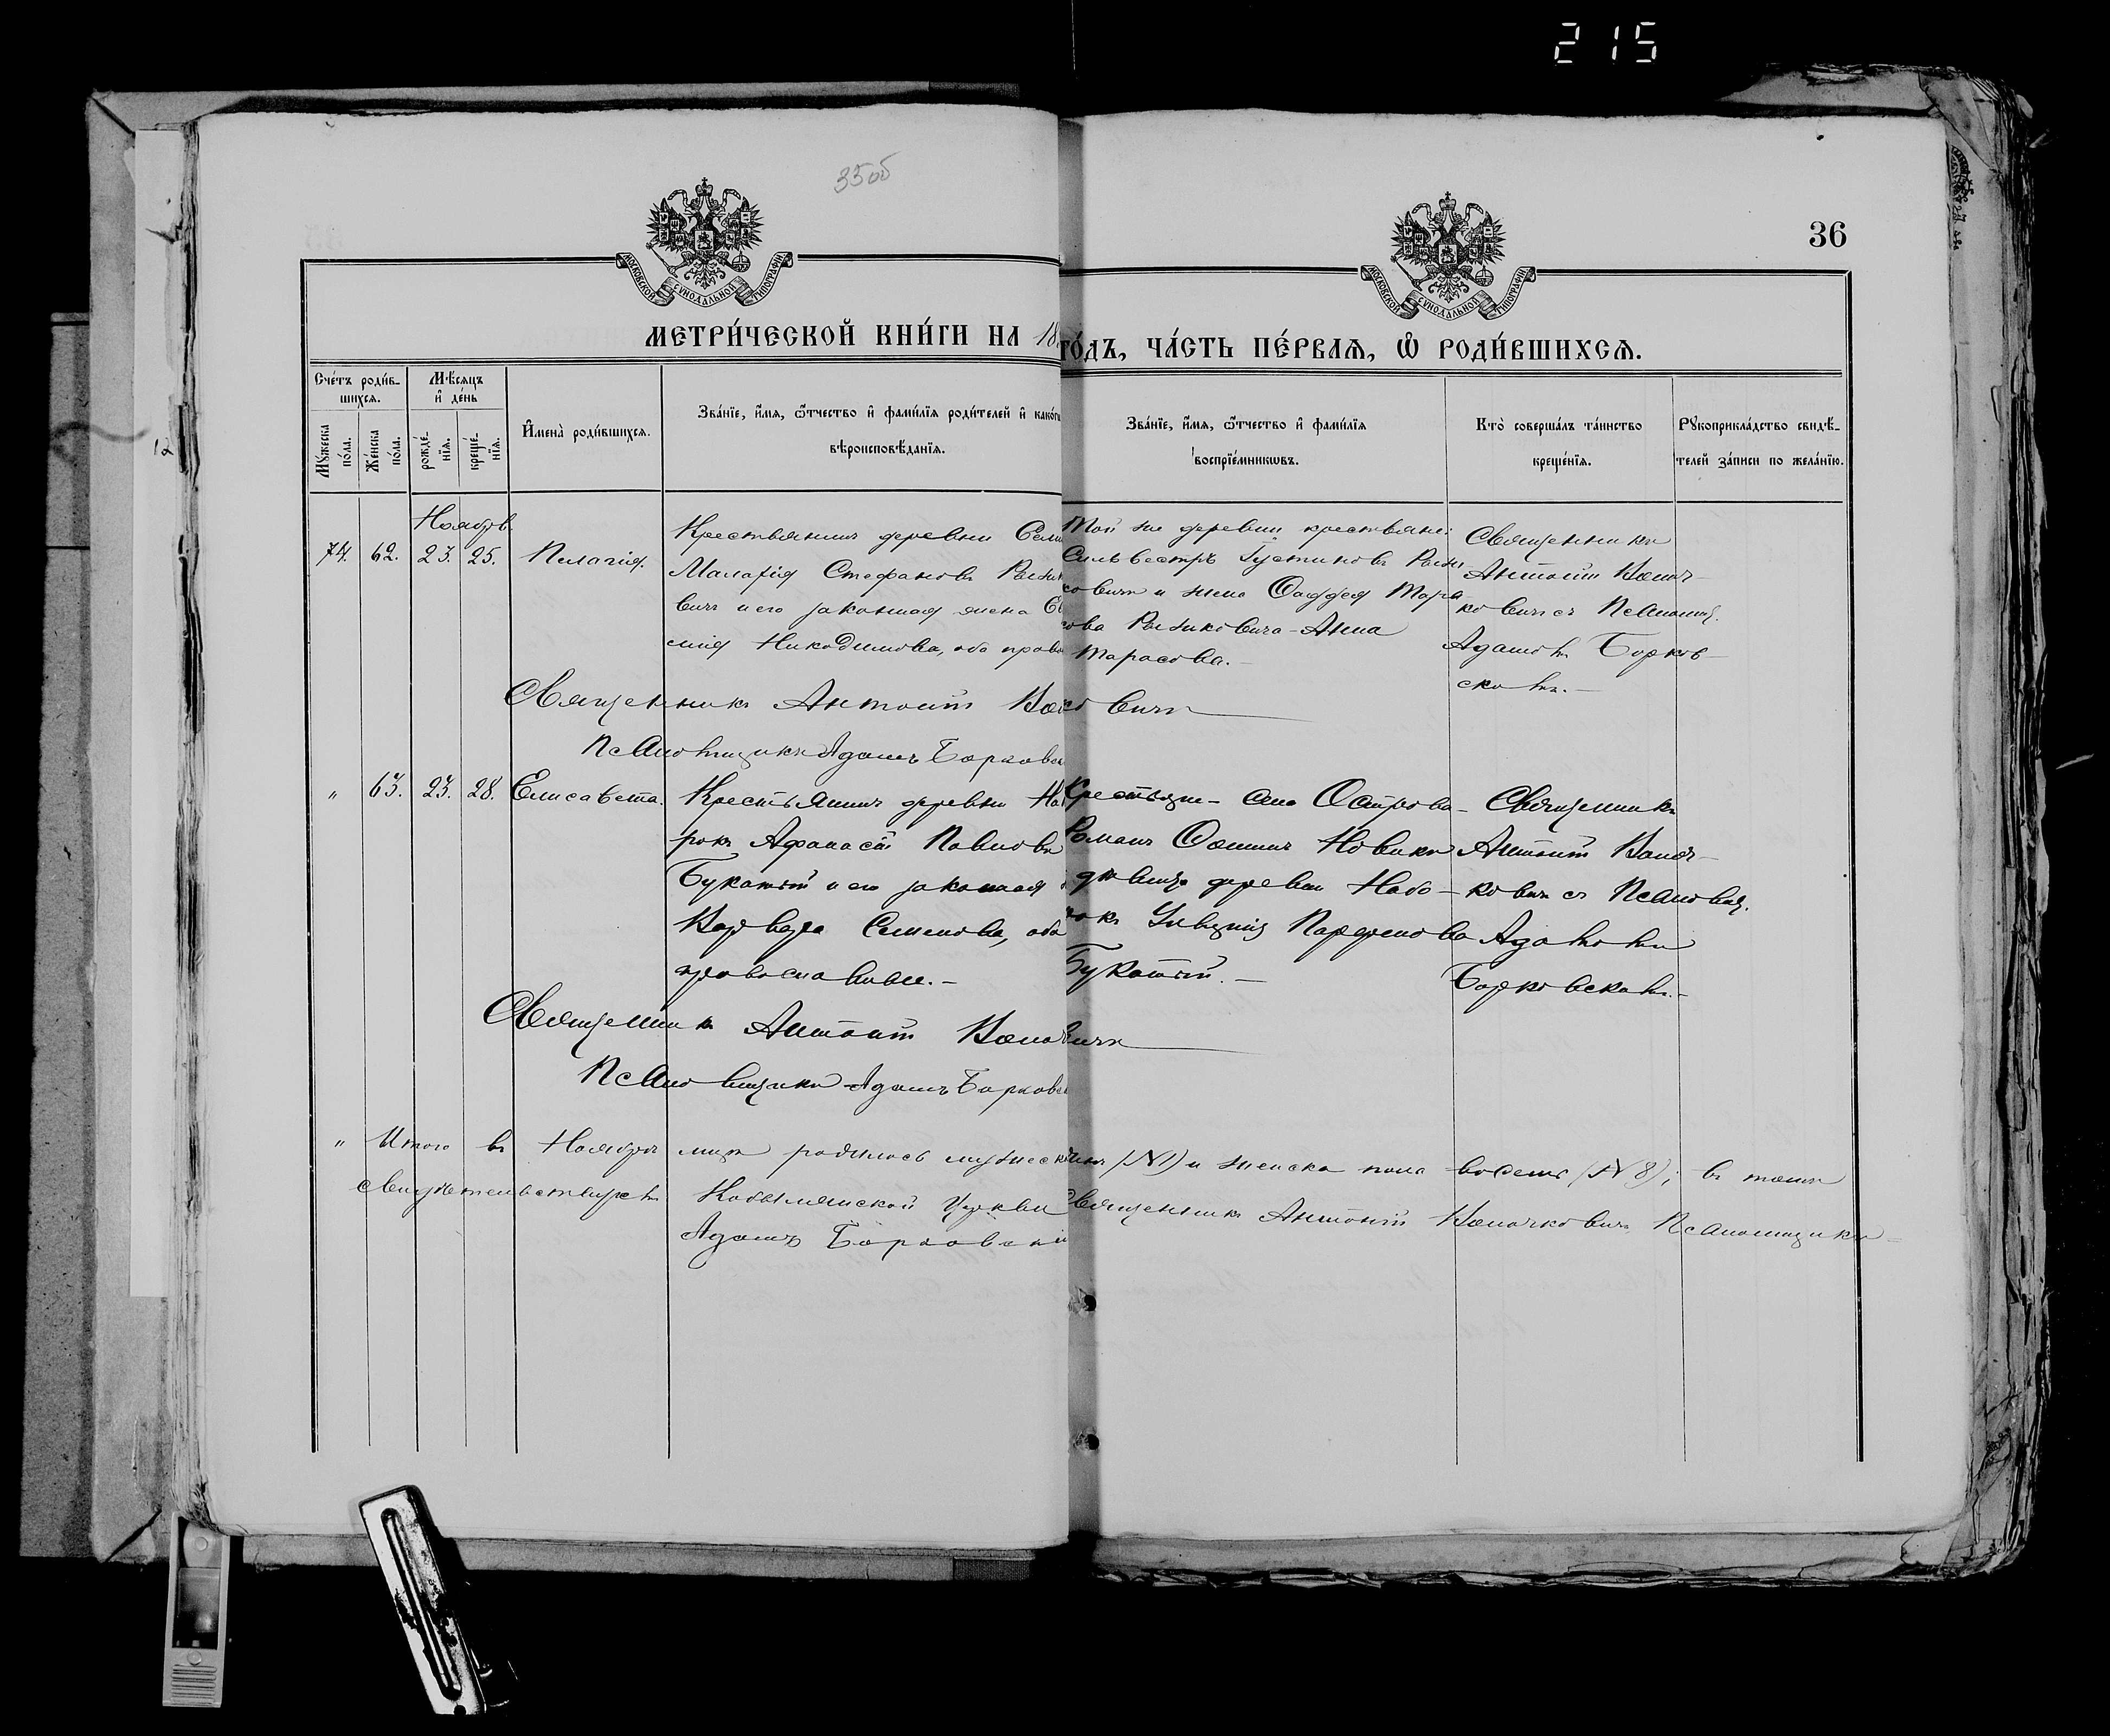 215
35об
36
МОСКОВСКОЙ СУНОДАЛЬНОЙ ТИПОГРАФІИ
МОСКОВСКОЙ СУНОДАЛЬНОЙ ТИПОГРАФІИ
МЕТРИ́ЧЕСКОЙ КНИ́ГИ НА 18
ГО́ДЪ, ЧА́СТЬ ПЕ́РВАѦ, Ѽ РОДИ́ВШИХСѦ.
Сче́тъ роди́в-
шихсѧ.
Мꙋ́жеска по́ла.
Же́нска по́ла.
Мѣ́сяцъ
и҆ де́нь
рожде́-
нїѧ.
креще́-
нїѧ.
И҆мена̀ роди́вшихсѧ.
Зва́нїе, и҆́мѧ, ѻ҆́тчество и҆ фами́лїѧ роди́телей и҆ како́гѡ
вѣроисповѣ́данїѧ.
Зва́нїе, и҆́мѧ, ѻ҆́тчество и҆ фами́лїѧ
воспрїе́мникѡвъ.
Кто̀ соверша́лъ та́инство
креще́нїѧ.
Рꙋкоприкла́дство свидѣ́-
телей за́писи по жела́нїю.
Ноябрь
74. 62. 23. 25. Пелагія.
Крестьянинъ деревни
Малафій Стефановъ
вичъ и его законная жена
мія Никодимова, оба право
Той же деревни крестьяне:
Сильвестръ Іустиновъ
ковичъ и жена Фаддея Тара
сова Рыжковича - Анна
Тарасова. -
Священникъ
Антоній
ковичъ съ Псаломщ.
Адамомъ Борков-
скимъ. -
Священникъ Антоній ковичъ
Псаломщикъ Адамъ Борковск
" 63. 23. 28. Елисавета.
Крестьянинъ деревни На
рокъ Афанасій Павловъ
Букатый и его законная
Варвара Семенова, оба
православные. -
Крестьяне - села Острова -
Романъ Фоминъ Новикъ
дѣвица деревни Набо -
рокъ Парфенова
Букатый. -
Священникъ
Антоній
ковичъ съ Псаломщ.
Адамомъ
Борковскимъ. -
Священникъ Антоній вичъ
Псаломщикъ Адамъ Борковск
" Итого въ Ноябрѣ м-цѣ родилось мужеск (№1) и женска пола восемь (№ 8); въ томъ
свидѣтельствуемъ Кобылянской Церкви Священникъ Антоній Псаломщикъ -
Адамъ Борковскій